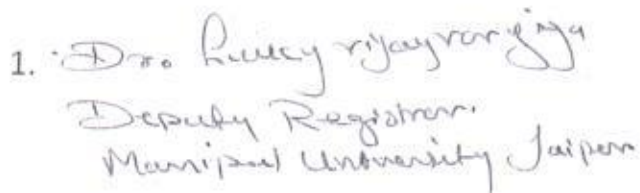 1. Dr. Lucky vijayvargiya
Deputy Registrar.
Manipal University Jaipur